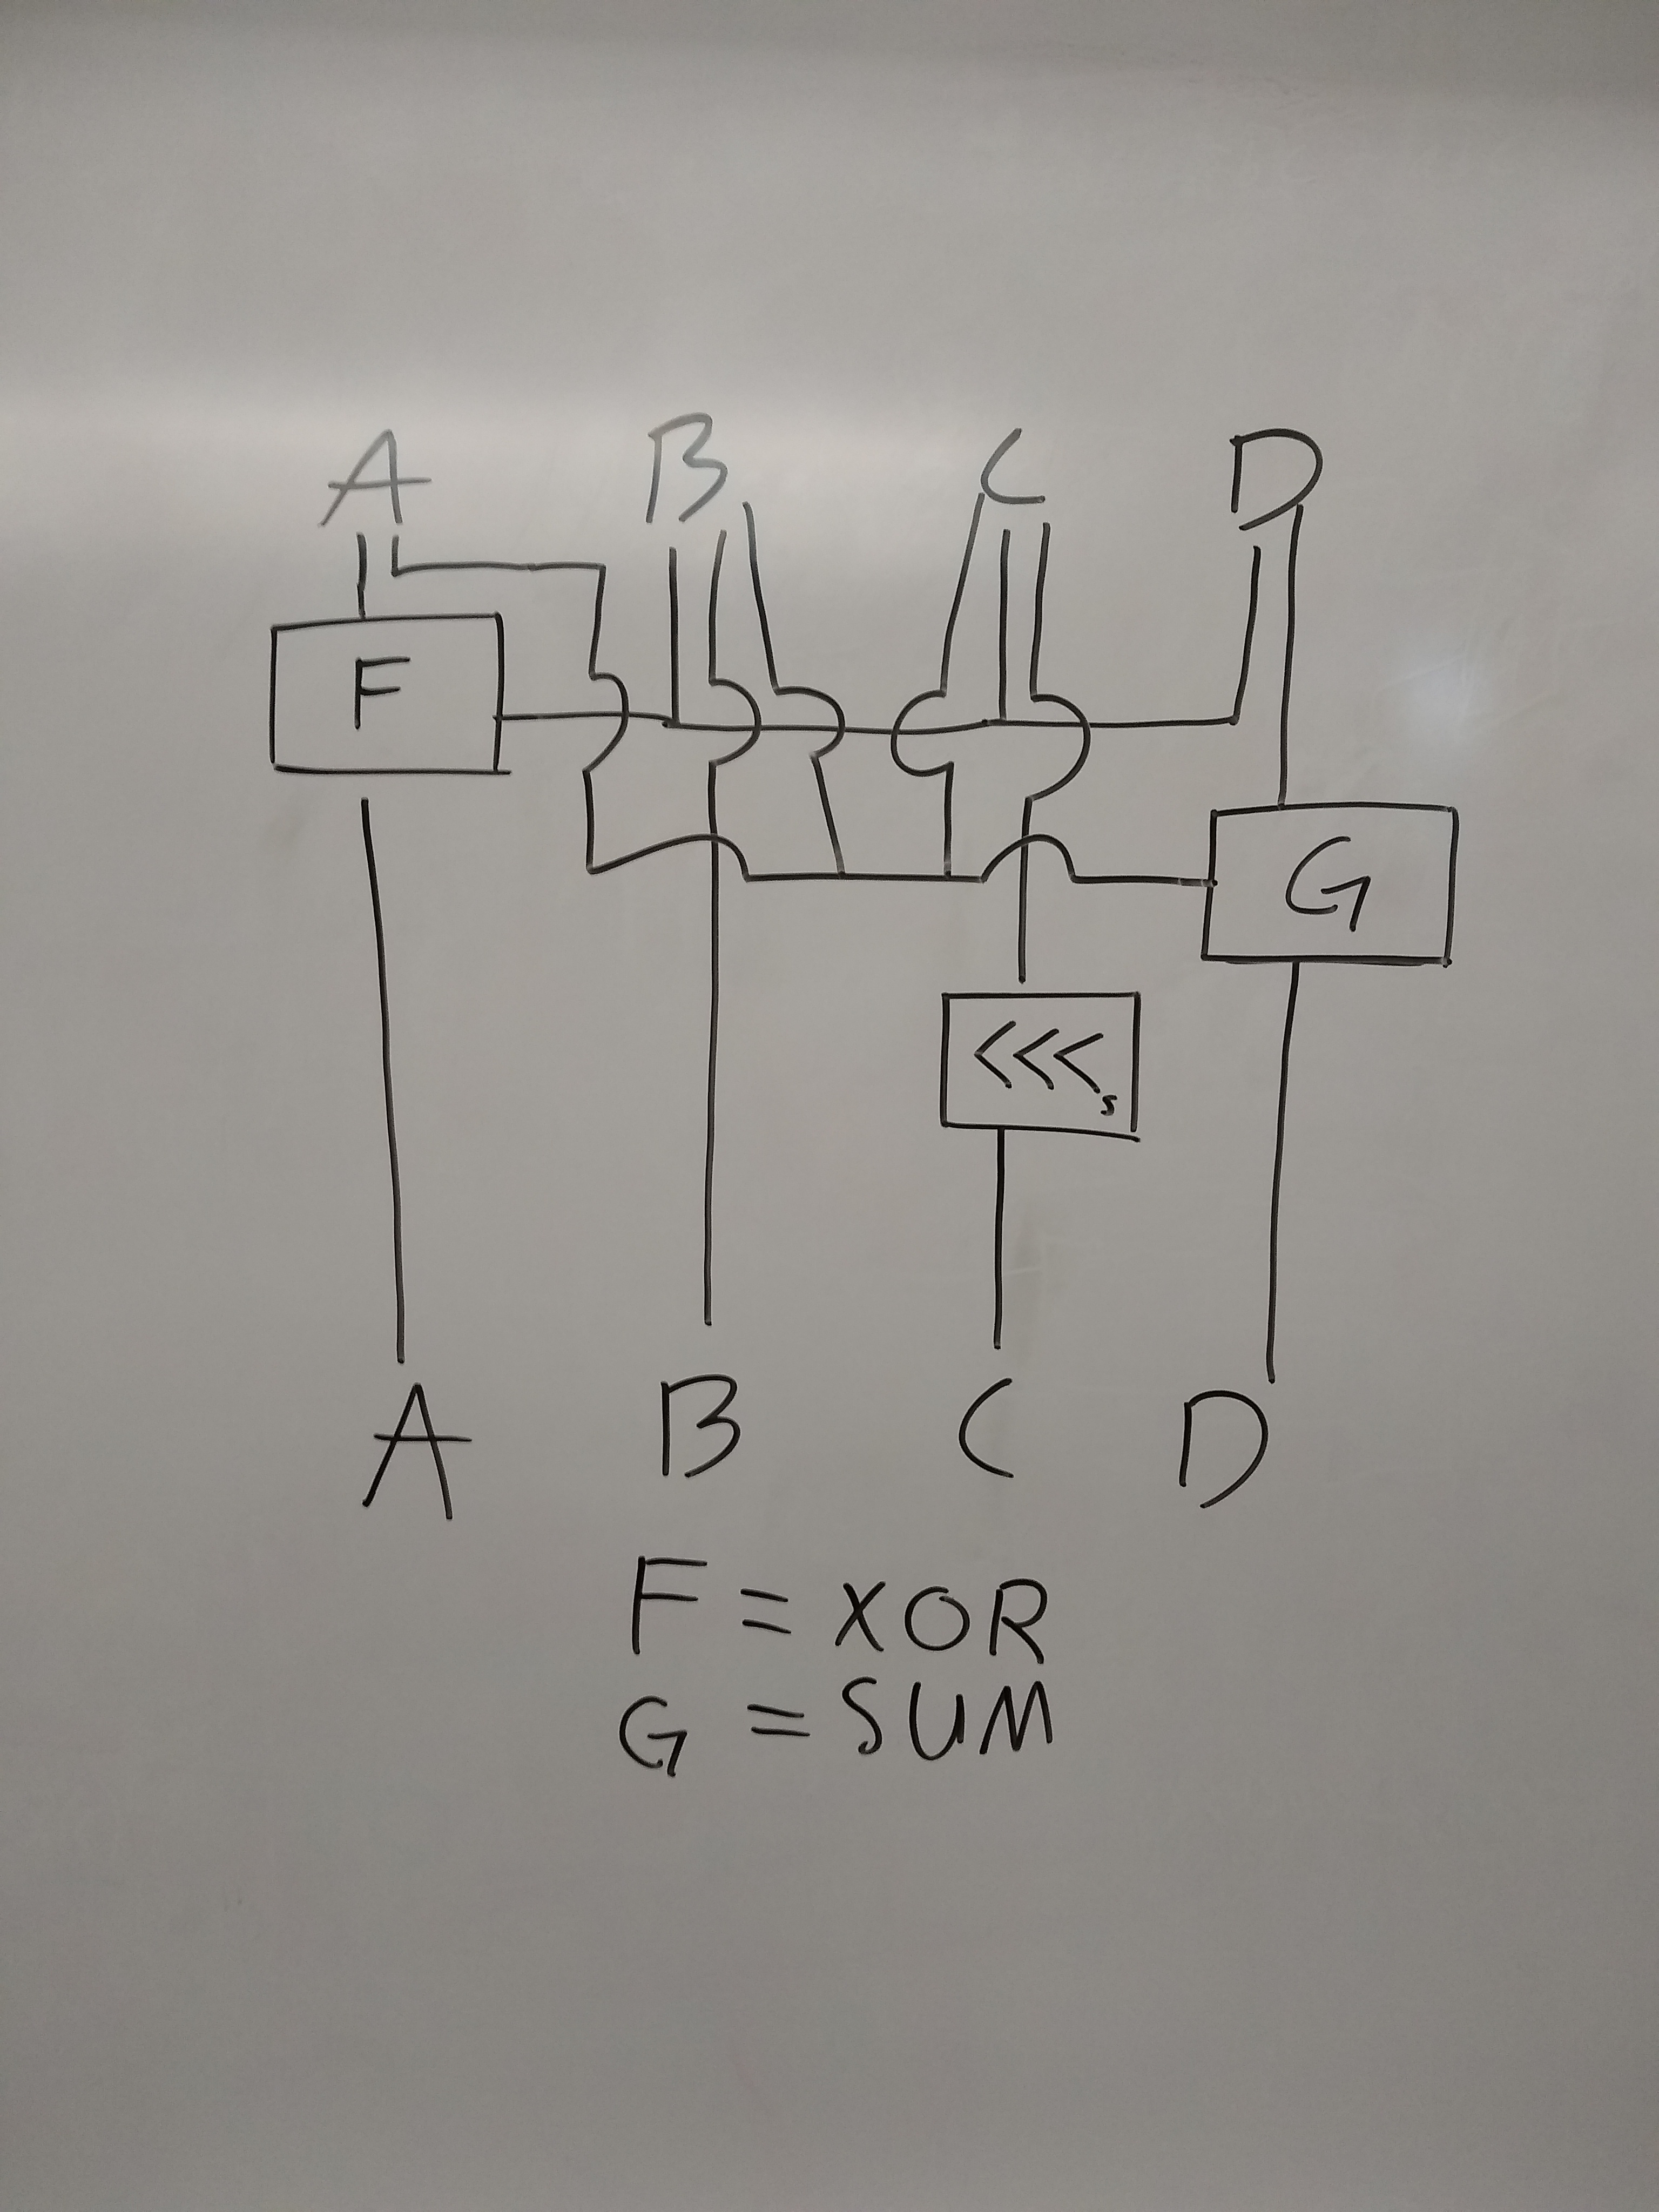 A B C D
F
G
<<<s
A B C D
F = XOR
G = SUM